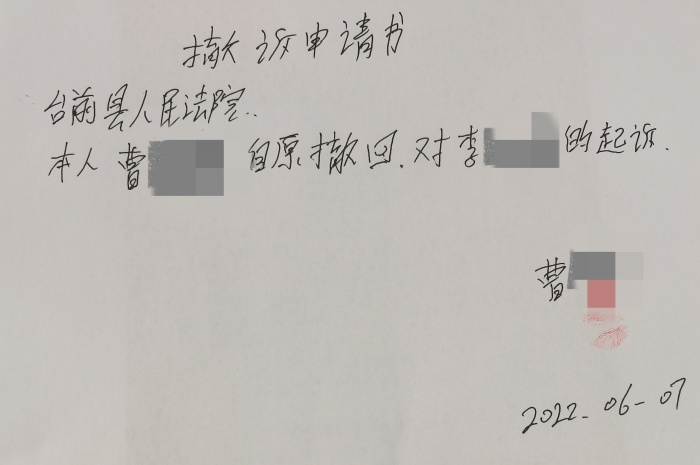 撤诉申请书
台前县人民法院..
本人曹 自原撤回.对李 的起诉.
曹
2022.06-07